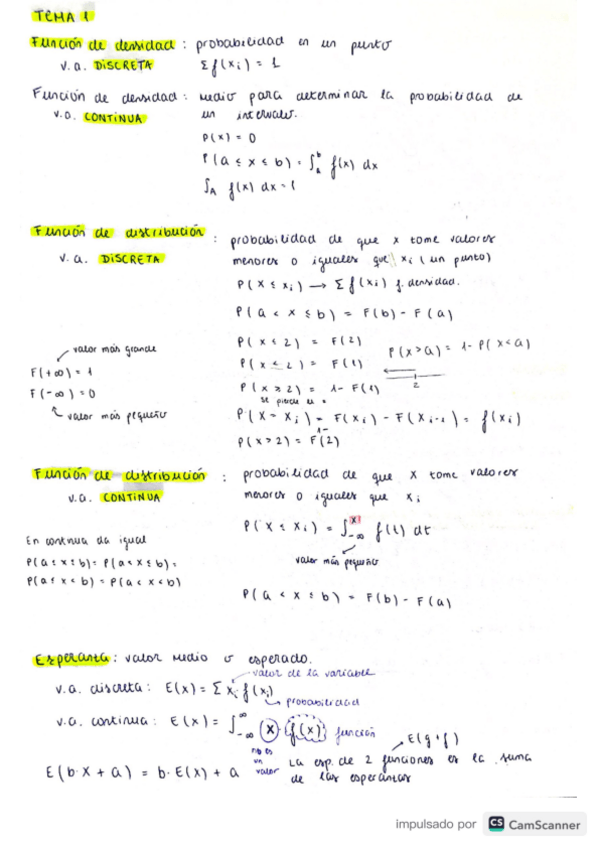 TEMA 1
Función de densidad : probabilidad en un punto
v.a. DISCRETA Σ f(xi) = 1
Función de densidad : medio para determinar la probabilidad de
v.a. CONTINUA un intervalo.
P(x) = 0
P(a ≤ x ≤ b) = ∫_A^b f(x) dx
∫_A f(x) dx = 1
Función de distribución : probabilidad de que x tome valores
v.a. DISCRETA menores o iguales que xi (un punto)
P(X ≤ xi) → Σ f(xi) f. densidad.
P(a < x ≤ b) = F(b) - F(a)
P(x ≤ 2) = F(2)
P(x > a) = 1 - P(x < a)
valor más grande
P(x < 2) = F(1)
F(+∞) = 1
P(x ≥ 2) = 1 - F(1)
2
F(-∞) = 0
se pierde es =
valor más pequeño
P(X = Xi) = F(Xi) - F(Xi-1) = f(xi)
1-
P(x > 2) = F(2)
Función de distribución : probabilidad de que x tome valores
v.a. CONTINUA menores o iguales que xi
P(X ≤ Xi) = ∫_-∞^x f(t) dt
En continua da igual
valor más pequeño
P(a ≤ x ≤ b) = P(a < x ≤ b) =
P(a ≤ x < b) = P(a < x < b)
P(a < x ≤ b) = F(b) - F(a)
Esperanza : valor medio o esperado.
valor de la variable
v.a. discreta : E(x) = Σ xi f(xi)
probabilidad
v.a. continua : E(x) = ∫_-∞^∞ x f(x) función
E(g + f)
no es un valor
La esp. de 2 funciones es la suma
E(b·X + a) = b·E(x) + a
de las esperanzas
impulsado por CS CamScanner